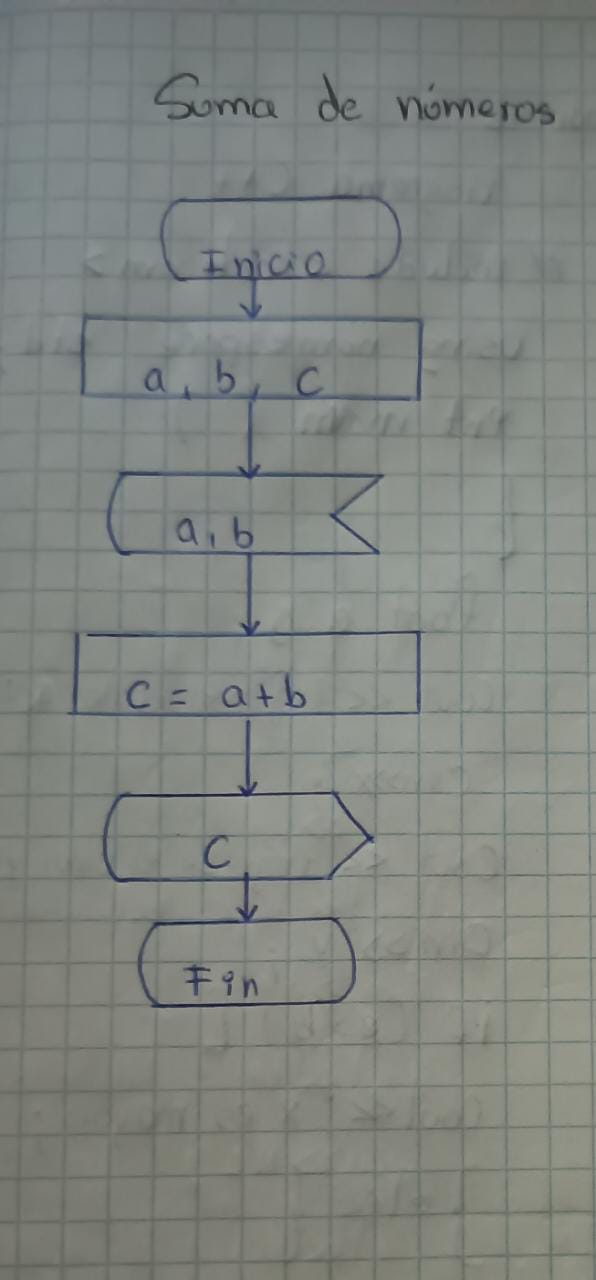 Suma de números
Inicio
a, b, c
a, b
c = a+b
c
Fin